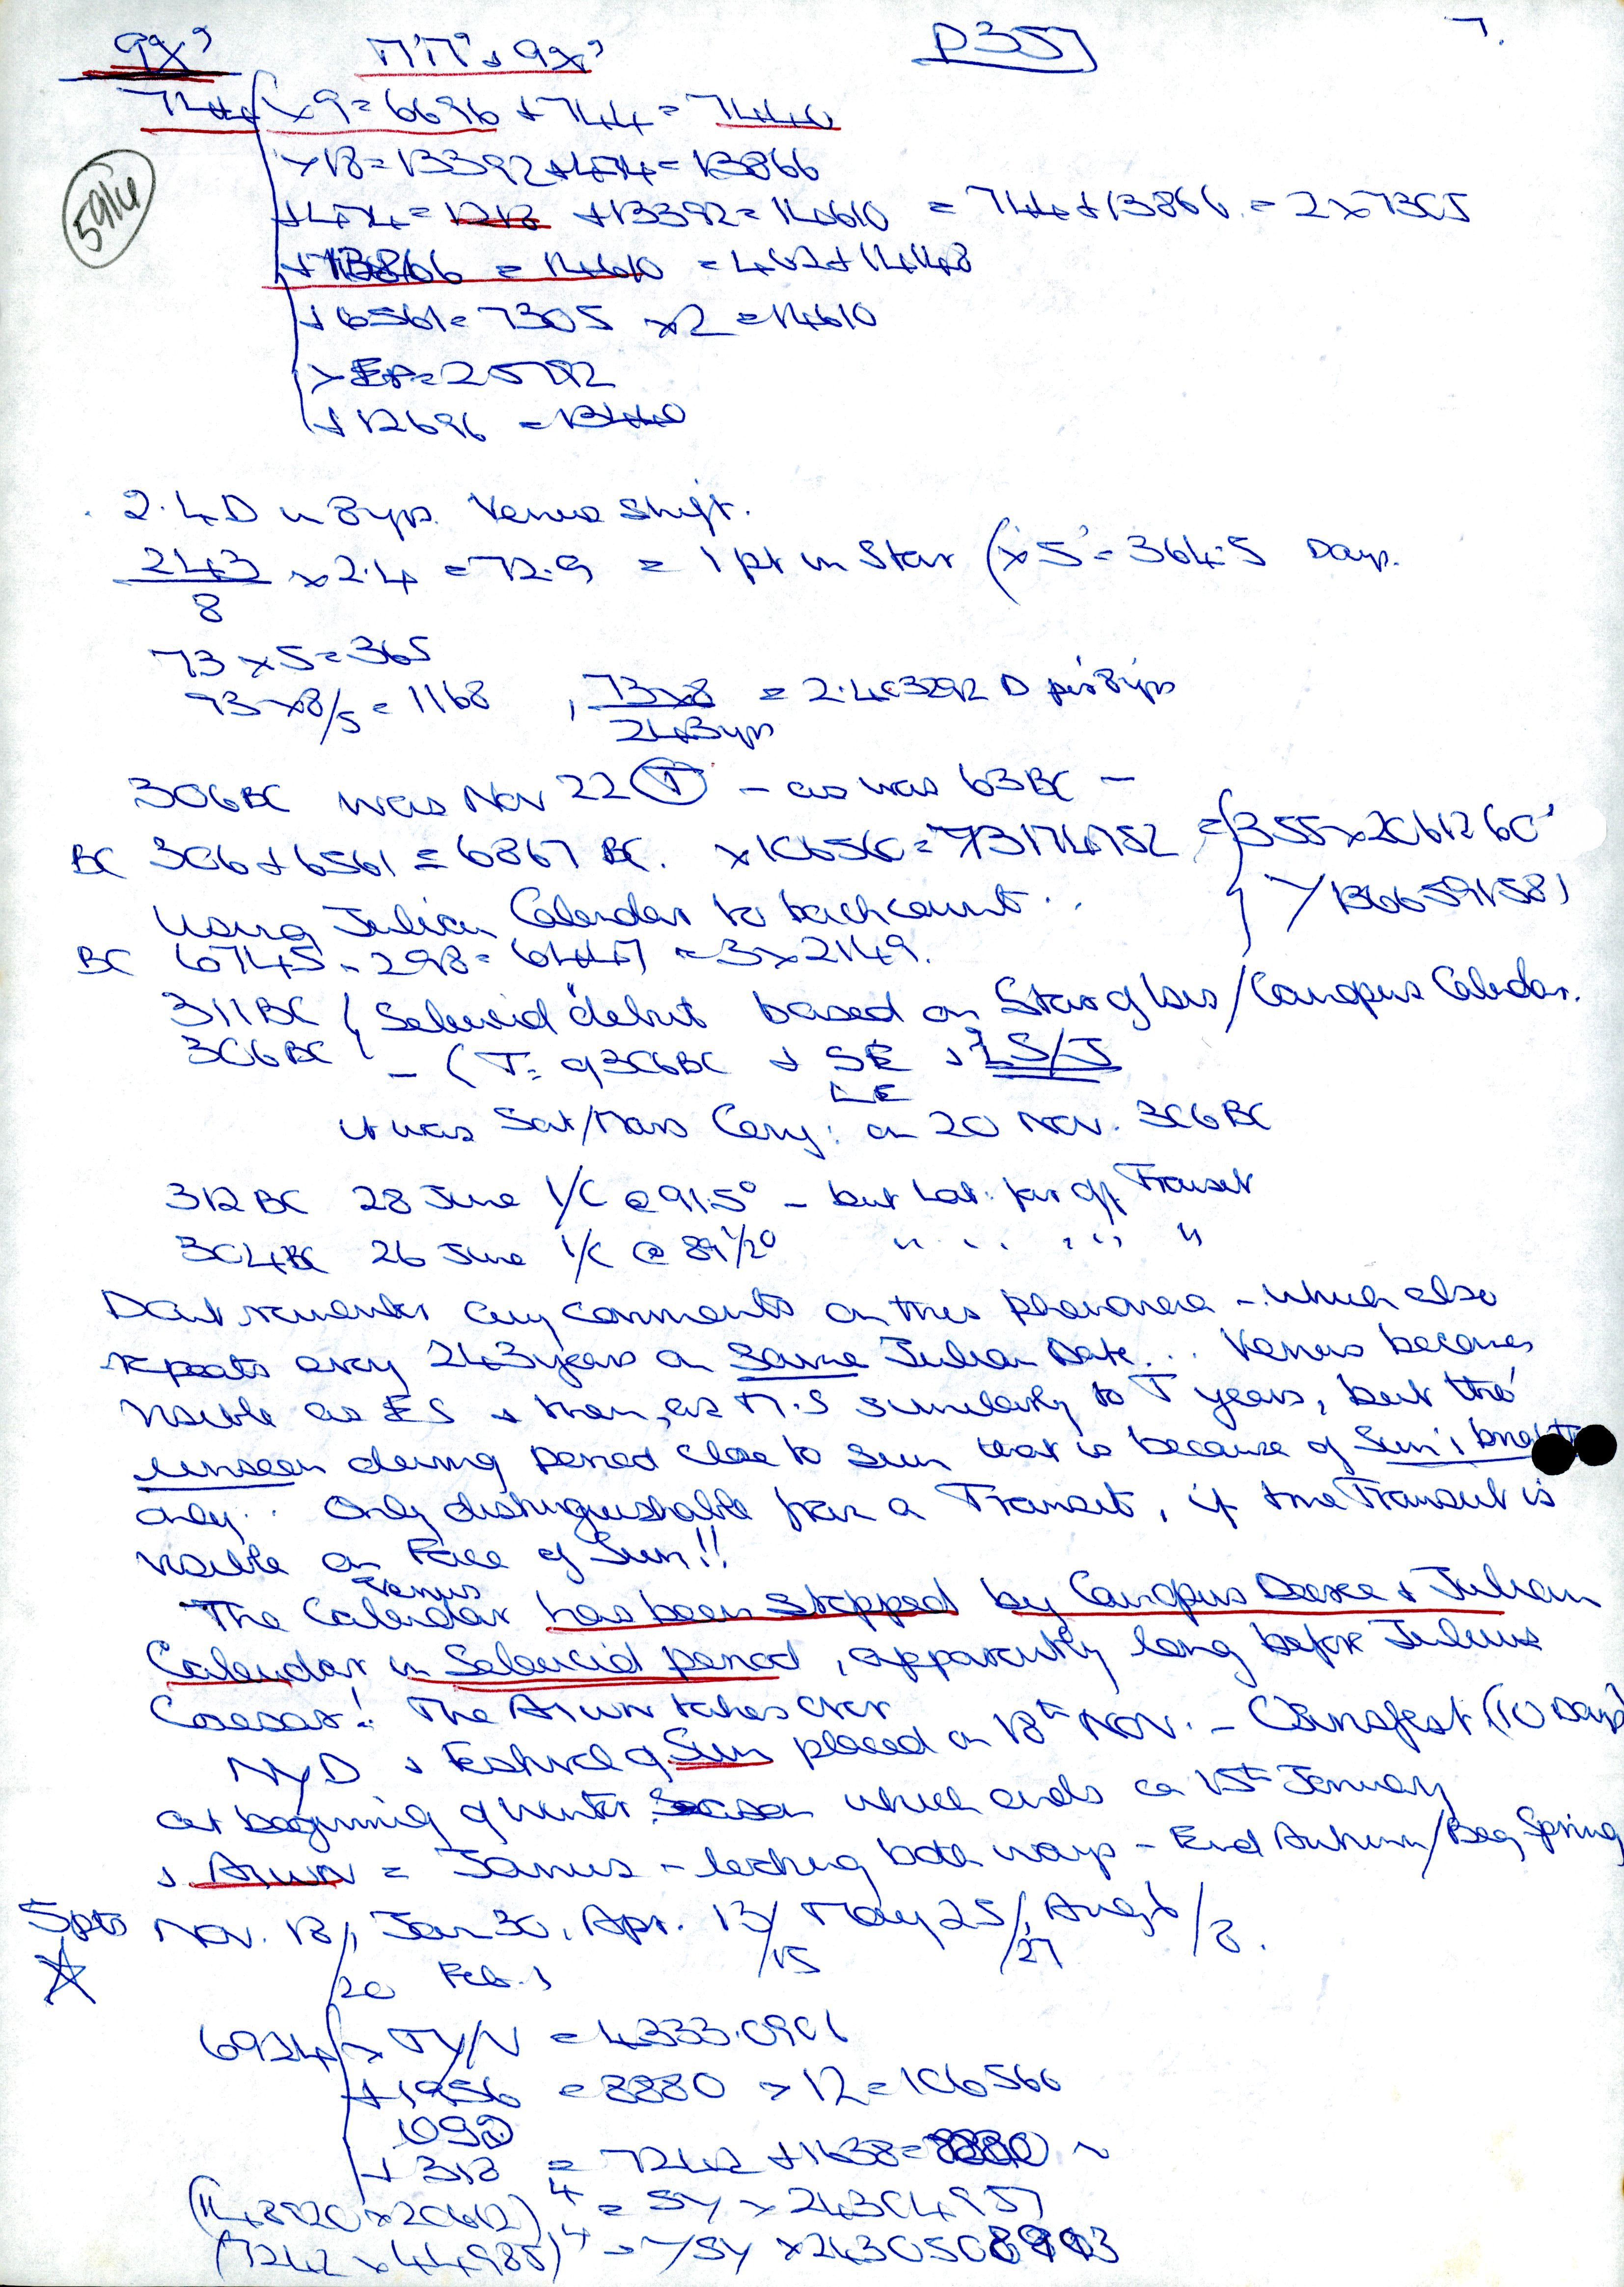 9x' D35J 7.
744 x 9 = 6696 + 744 = 7440
5914
x 18 = 13392 + 474 = 13866
+ 474 = 1218 + 13392 = 14610 = 744 + 13866 = 2 x 7305
+ 13866 = 14610 = 462 + 14148
+ 6561 = 7305 x 2 = 14610
= 25792
+ 12696 = 13440
2.4D in 8yrs. Venus Shift.
2143/8 x 2.4 = 72.9 = 1 pt in Star (x 5 = 364.5 Days.
73 x 5 = 365
73 x 8/5 = 1168 , 73x8/243yrs = 2.403292 D per 8yrs
306BC was Nov 22 (T) – as was 63BC –
BC 306 + 6561 = 6867 BC. x 10656 = 73174752 = 355 x 206126.0'
Using Julian Calendar to backcount..
BC 6745 - 298 = 6447 = 3 x 2149.
311BC Seleucid "debut based on Canopus Calendar.
306BC – (T = 9306BC + SE
LE
it was Sat/Mars Conj: on 20 Nov. 306BC
312 BC 28 June I/C @ 91.5° – but Lat. far off Transit
304BC 26 June I/C @ 89 1/2° " " " "
Don't remember any comments on this phenomena – which also
repeats every 243 years on same Julian Date... Venus becomes
visible as ES & then, as M.S similarly to T years, but tho'
unseen during period close to Sun that is because of Sun's
only.. Only distinguishable from a Transit, if the Transit is
visible on Face of Sun!!
The Venus Calendar has been stopped by Canopus Decree & Julian
Calendar in Seleucid period, apparently long before Julius
Caesar! The takes over
NYD & Festival of Sun placed on 18th Nov. – (10 Days)
at beginning of winter Season which ends on 15th January
& = Janus – looking both ways – End Autumn/Beg Spring
5pts Nov. 18/, Jan 30, Apr. 13/ May 25/, Aug 6/8.
/20 Feb. 1 /15 /27
6924 x TY/N = 4333.0901
+ 1956 = 8880 x 12 = 106560
+ 318 = 7242 + 1638 = 8880
x 20612)4 = SY x 24304957
(7242 x 44985)4